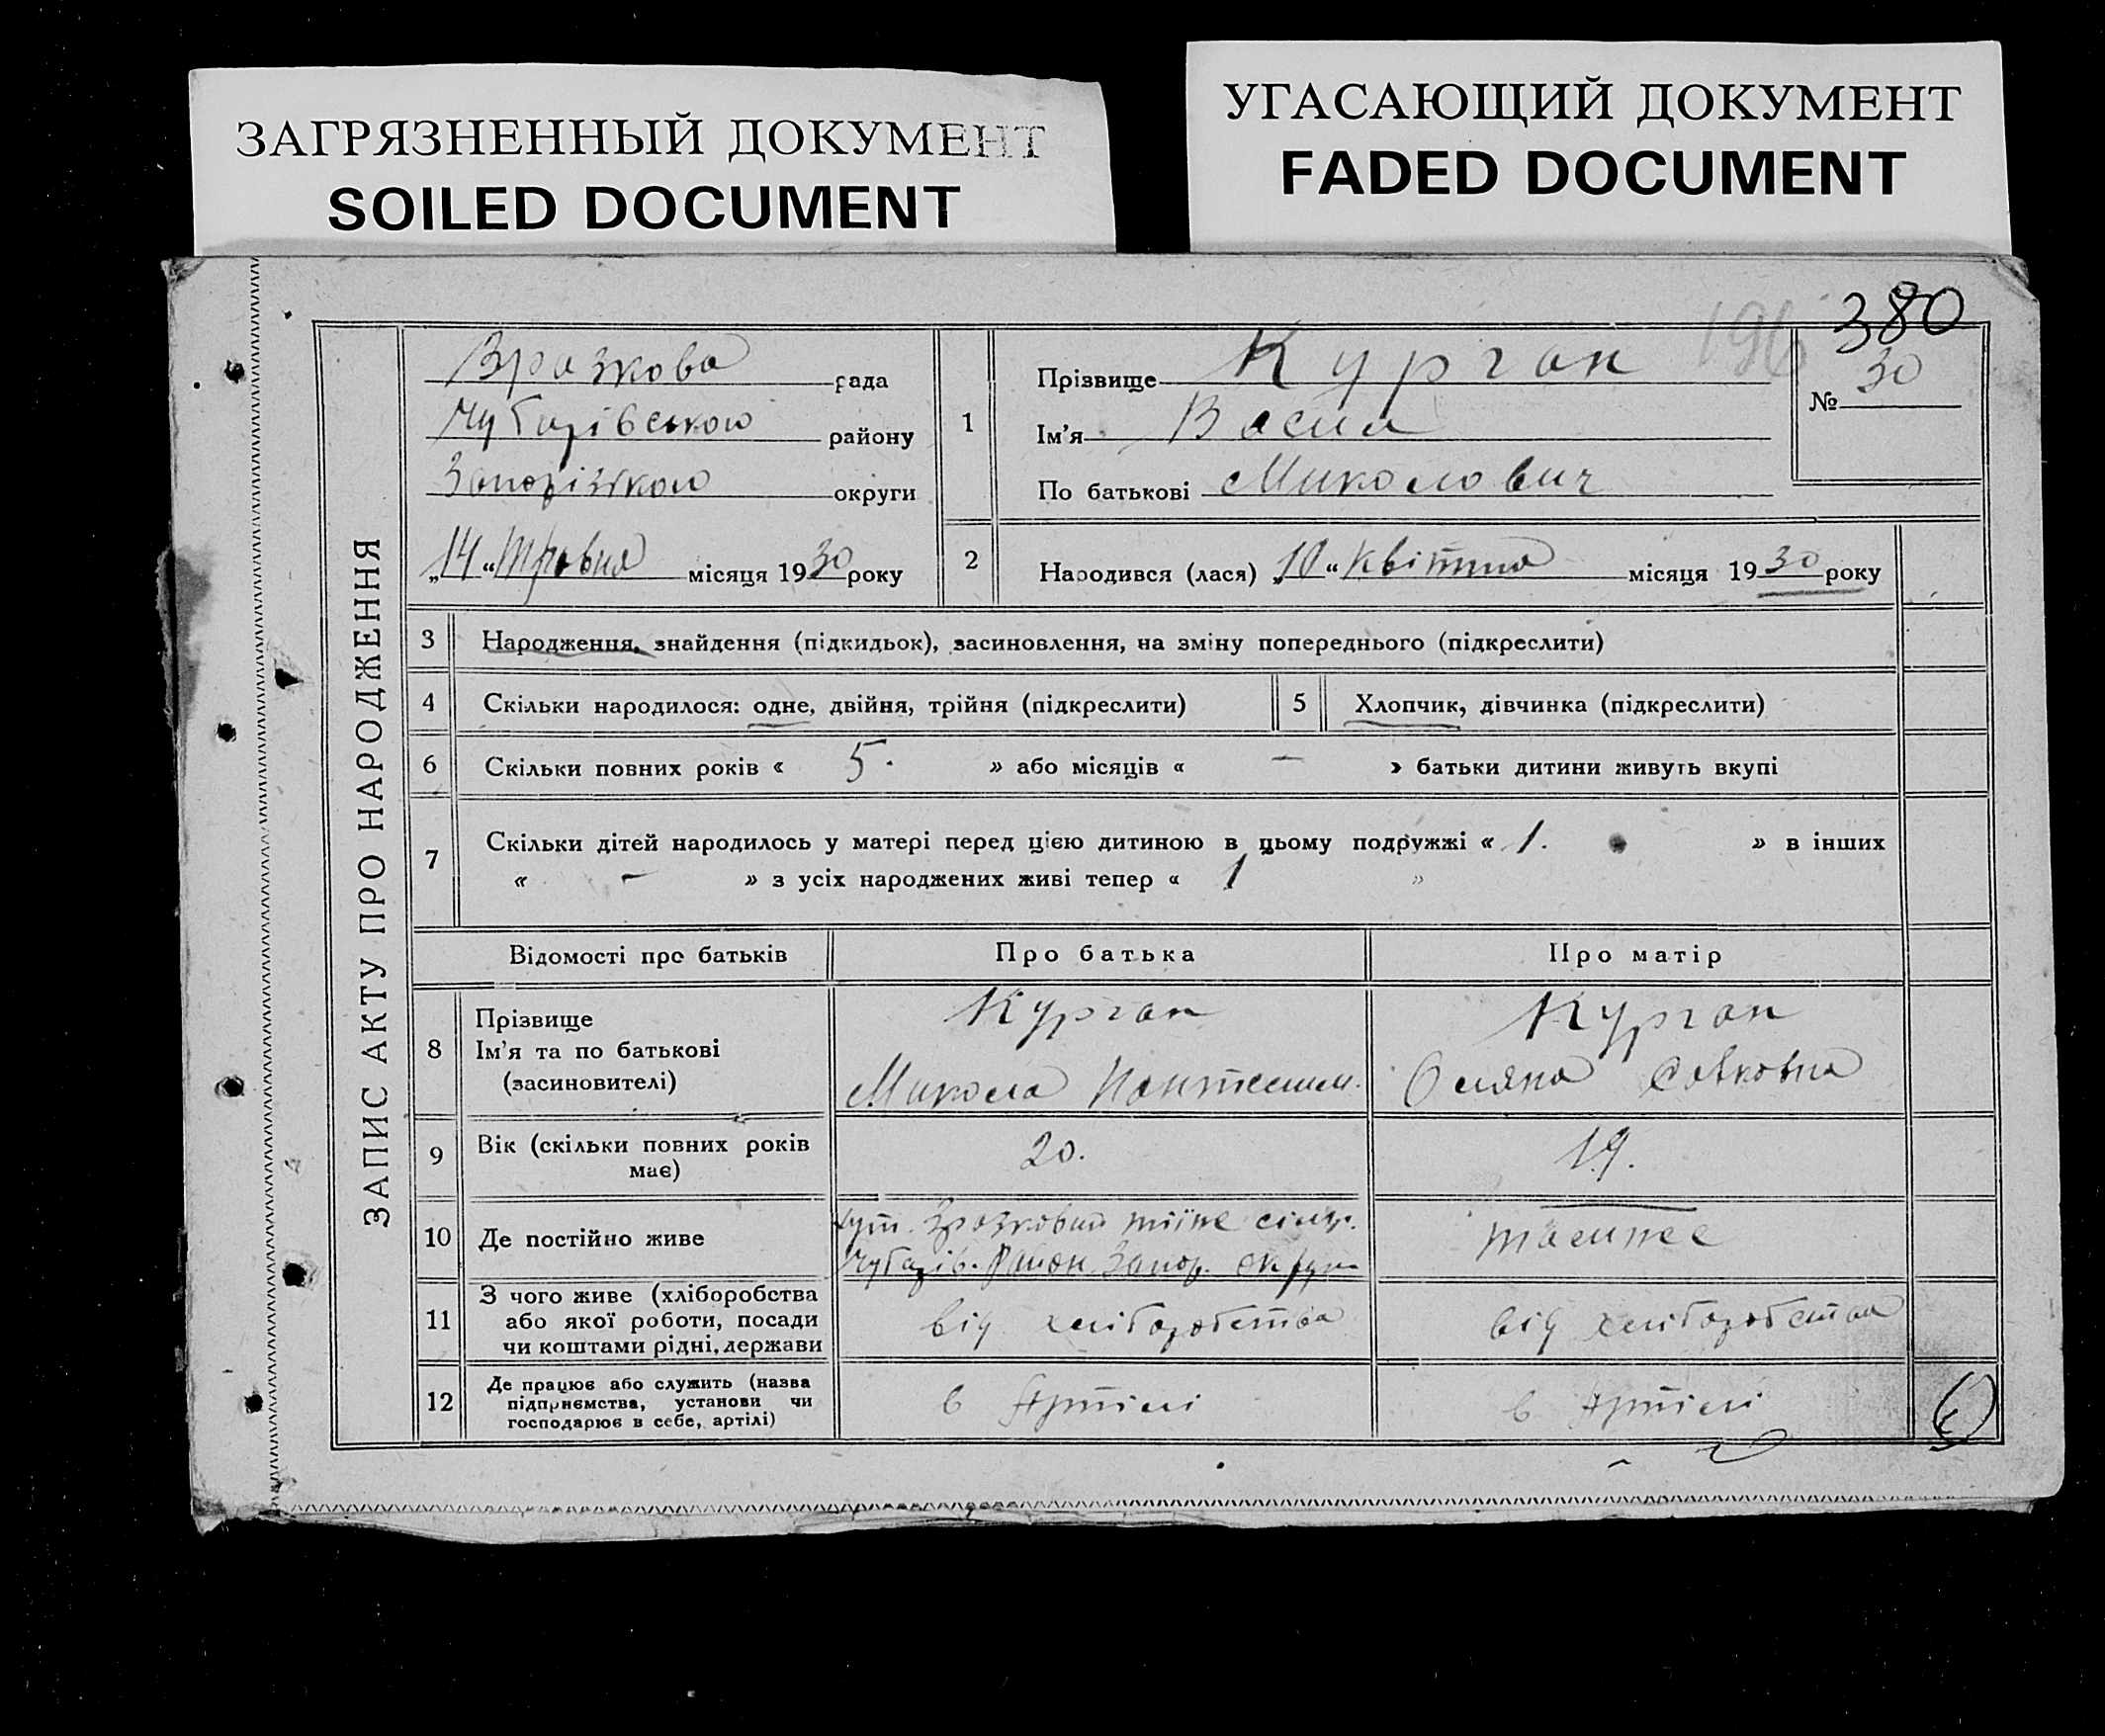 ЗАГРЯЗНЕННЫЙ ДОКУМЕНТ
SOILED DOCUMENT
УГАСАЮЩИЙ ДОКУМЕНТ
FADED DOCUMENT
380
196
ЗАПИС АКТУ ПРО НАРОДЖЕННЯ
Зразкова рада
Чубарівською району
Запорізькою округи
„14“ травня місяця 1930 року
1 Прізвище Курган
Ім'я Васил
По батькові Миколович
№ 30
2 Народився (лася) „10“ квітня місяця 1930 року
3 Народження, знайдення (підкидьок), засиновлення, на зміну попереднього (підкреслити)
4 Скільки народилося: одне, двійня, трійня (підкреслити)
5 Хлопчик, дівчинка (підкреслити)
6 Скільки повних років « 5. » або місяців « – » батьки дитини живуть вкупі
7 Скільки дітей народилось у матері перед цією дитиною в цьому подружжі « 1. » в інших
« – » з усіх народжених живі тепер « 1 »
Відомості про батьків Про батька Про матір
8 Прізвище
Ім'я та по батькові
(засиновителі)
Курган
Микола
Курган
Оляна
9 Вік (скільки повних років
має)
20.
19.
10 Де постійно живе
хут. Зразковий
Чубарів. Район Запор. округи
11 З чого живе (хліборобства
або якої роботи, посади
чи коштами рідні, держави
від хліборобства
від хліборобства
12 Де працює або служить (назва
підприємства, установи чи
господарює в себе, артілі)
в Артілі
в Артілі